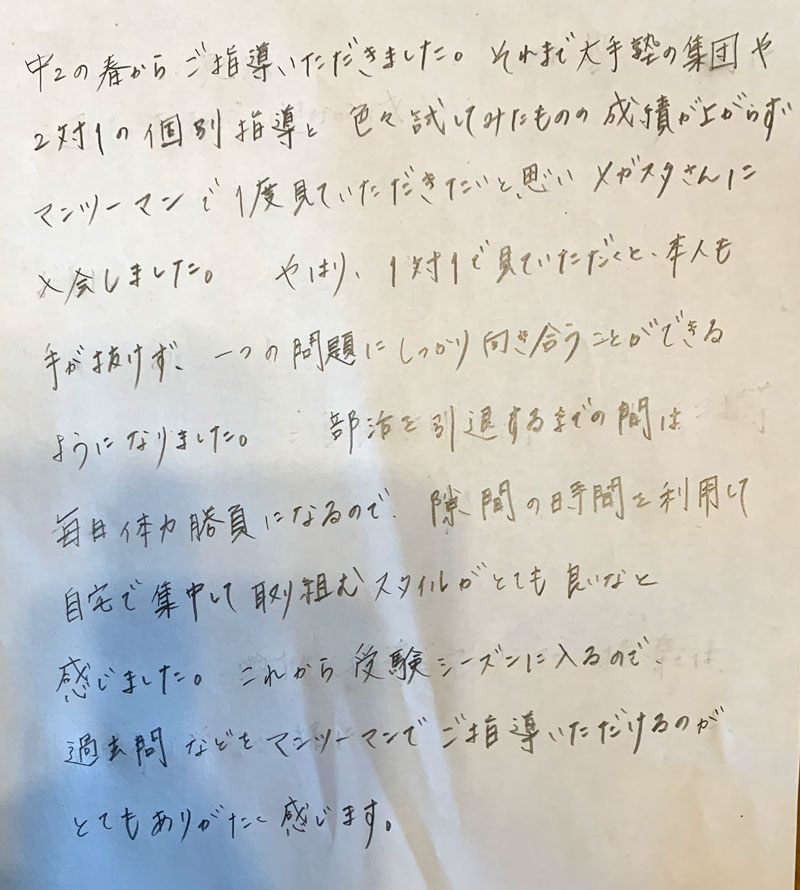 中2の春からご指導いただきました。それまで大手塾の集団や
2対1の個別指導と色々試してみたものの成績が上がらず
マンツーマンで1度見ていただきたいと思いメガスタさんに
入会しました。 やはり、1対1で見ていただくと、本人も
手が抜けず、一つの問題にしっかり向き合うことができる
ようになりました。 部活を引退するまでの間は
毎日体力勝負になるので、隙間の時間を利用して
自宅で集中して取り組むスタイルがとても良いなと
感じました。これから受験シーズンに入るので、
過去問などをマンツーマンでご指導いただけるのが
とてもありがたく感じます。